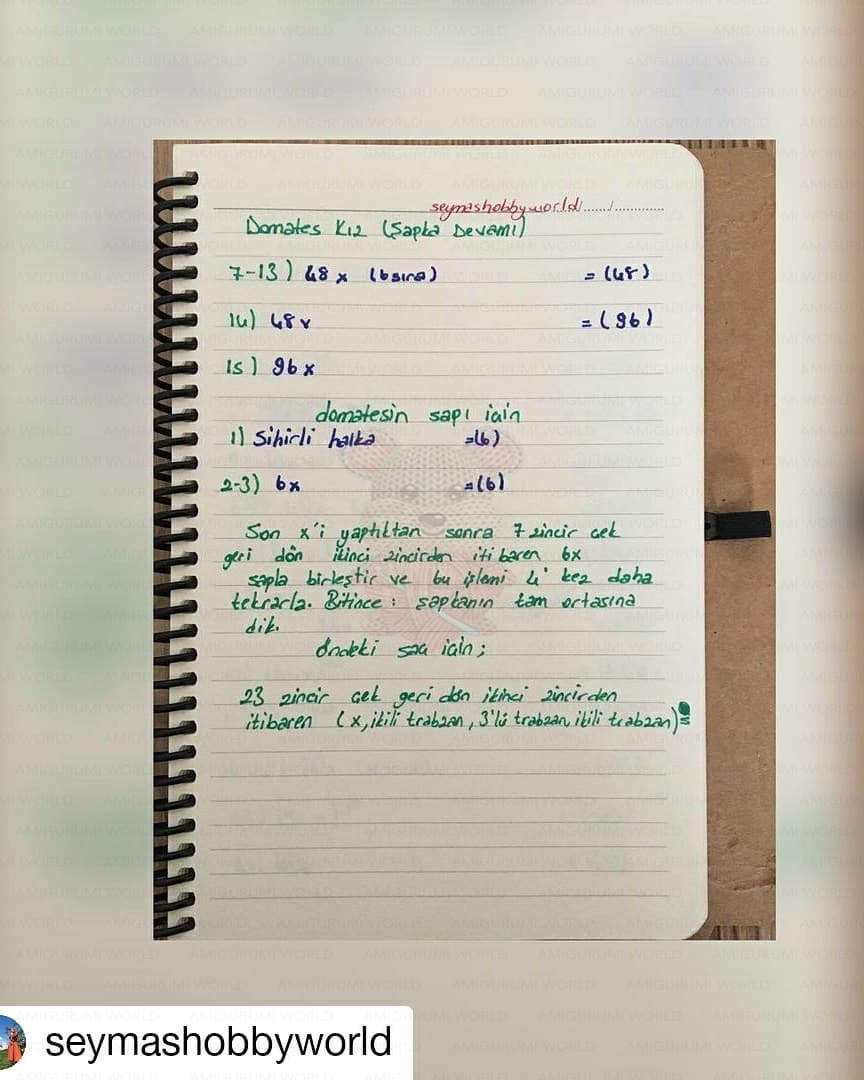 seymashobbyworld
Domates Kız (Şapka Devamı)
7-13) 48 x (6 sıra) = (48)
14) 48v = (96)
15) 96x
domatesin sapı için
1) Sihirli halka =(6)
2-3) 6x =(6)
Son x'i yaptıktan sonra 7 zincir çek
geri dön ikinci zincirden itibaren 6x
sapla birleştir ve bu işlemi 4' kez daha
tekrarla. Bitince : şapkanın tam ortasına
dik.
Öndeki saç için;
23 zincir çek geri dön ikinci zincirden
itibaren (x, ikili trabzan, 3'lü trabzan, ikili trabzan)
seymashobbyworld
AMIGURUMI WORLD